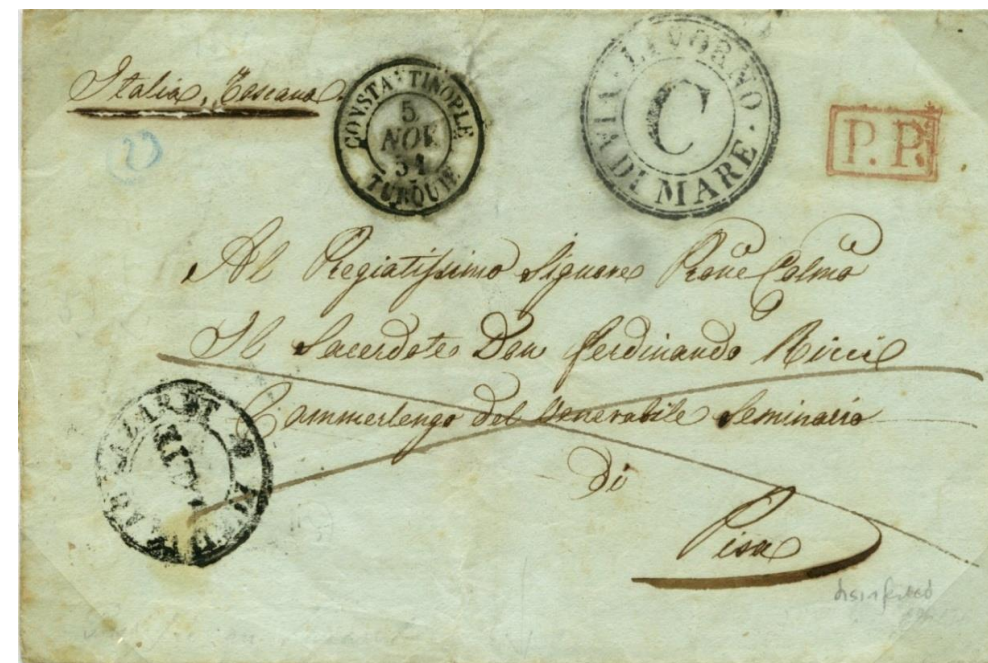 Italia, Toscana
CONSTANTINOPLE
5
NOV.
51
TURQUIE
VIA · LIVORNO · DI MARE ·
C
P.P.
Al Pregiatissimo Signore Prone Colmo
Il Sacerdote Don Ferdinando Ricci
Cammerlengo del Venerabile Seminario
di
Pisa